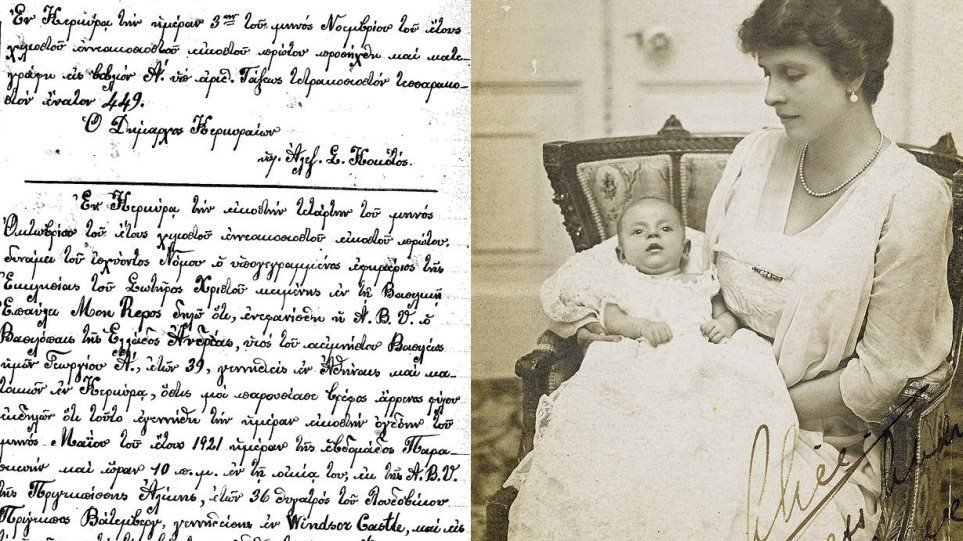 Ἐν Κερκύρᾳ τὴν ἡμέραν 3ην τοῦ μηνὸς Νοεμβρίου τοῦ ἔτους
χιλιοστοῦ ἐννεακοσιοστοῦ εἰκοστοῦ πρώτου προσήχθη καὶ κατε-
γράφη εἰς βιβλίον Α. ὑπ' ἀριθ. Τάξεως τετρακοσιοστὸν τεσσαρακο-
στὸν ἔνατον 449.
Ὁ Δήμαρχος Κερκυραίων
Ἀλεξ. Σ. Κοκοτός.
Ἐν Κερκύρᾳ τὴν εἰκοστὴν τετάρτην τοῦ μηνὸς
Ὀκτωβρίου τοῦ ἔτους χιλιοστοῦ ἐννεακοσιοστοῦ εἰκοστοῦ πρώτου,
δυνάμει τοῦ ἰσχύοντος Νόμου ὁ ὑπογεγραμμένος ἐφημέριος τῆς
Ἐκκλησίας τοῦ Σωτῆρος Χριστοῦ κειμένης ἐν τῇ Βασιλικῇ
Ἐπαύλει Mon Repos δηλῶ ὅτι, ἐνεφανίσθη ἡ Α.Β.Υ. ὁ
Βασιλόπαις τῆς Ἑλλάδος Ἀνδρέας, υἱὸς τοῦ ἀειμνήστου Βασιλέως
ἡμῶν Γεωργίου Α., ἐτῶν 39, γεννηθεὶς ἐν Ἀθήναις καὶ κα-
τοικῶν ἐν Κερκύρᾳ, ὅστις μοὶ παρουσίασε βρέφος ἄρρενος φύλου
ἐκδηλῶν ὅτι τοῦτο ἐγεννήθη τὴν ἡμέραν εἰκοστὴν ὀγδόην τοῦ
μηνὸς Μαΐου τοῦ ἔτους 1921 ἡμέραν τῆς ἑβδομάδος Παρα-
σκευὴν καὶ ὥραν 10 π.μ. ἐν τῇ οἰκίᾳ του, ἐκ τῆς Α.Β.Υ.
τῆς Πριγκιπίσσης Ἀλίκης, ἐτῶν 36 θυγατρὸς τοῦ Λουδοβίκου
Πρίγκιπος Βάτεμβεργ, γεννηθείσης ἐν Windsor Castle, καὶ εἰς
Alice